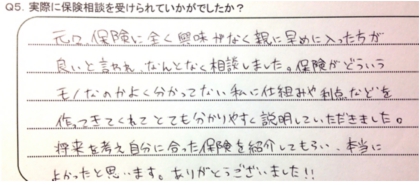 Q5. 実際に保険相談を受けられていかがでしたか？
元々、保険に全く興味がなく親に早めに入った方が
良いと言われ、なんとなく相談しました。保険がどういう
モノなのかよく分かってない私に仕組みや利点などを
作ってきてくれてとても分かりやすく説明していただきました。
将来を考え自分に合った保険を紹介してもらい、本当に
よかったと思います。ありがとうございました!!